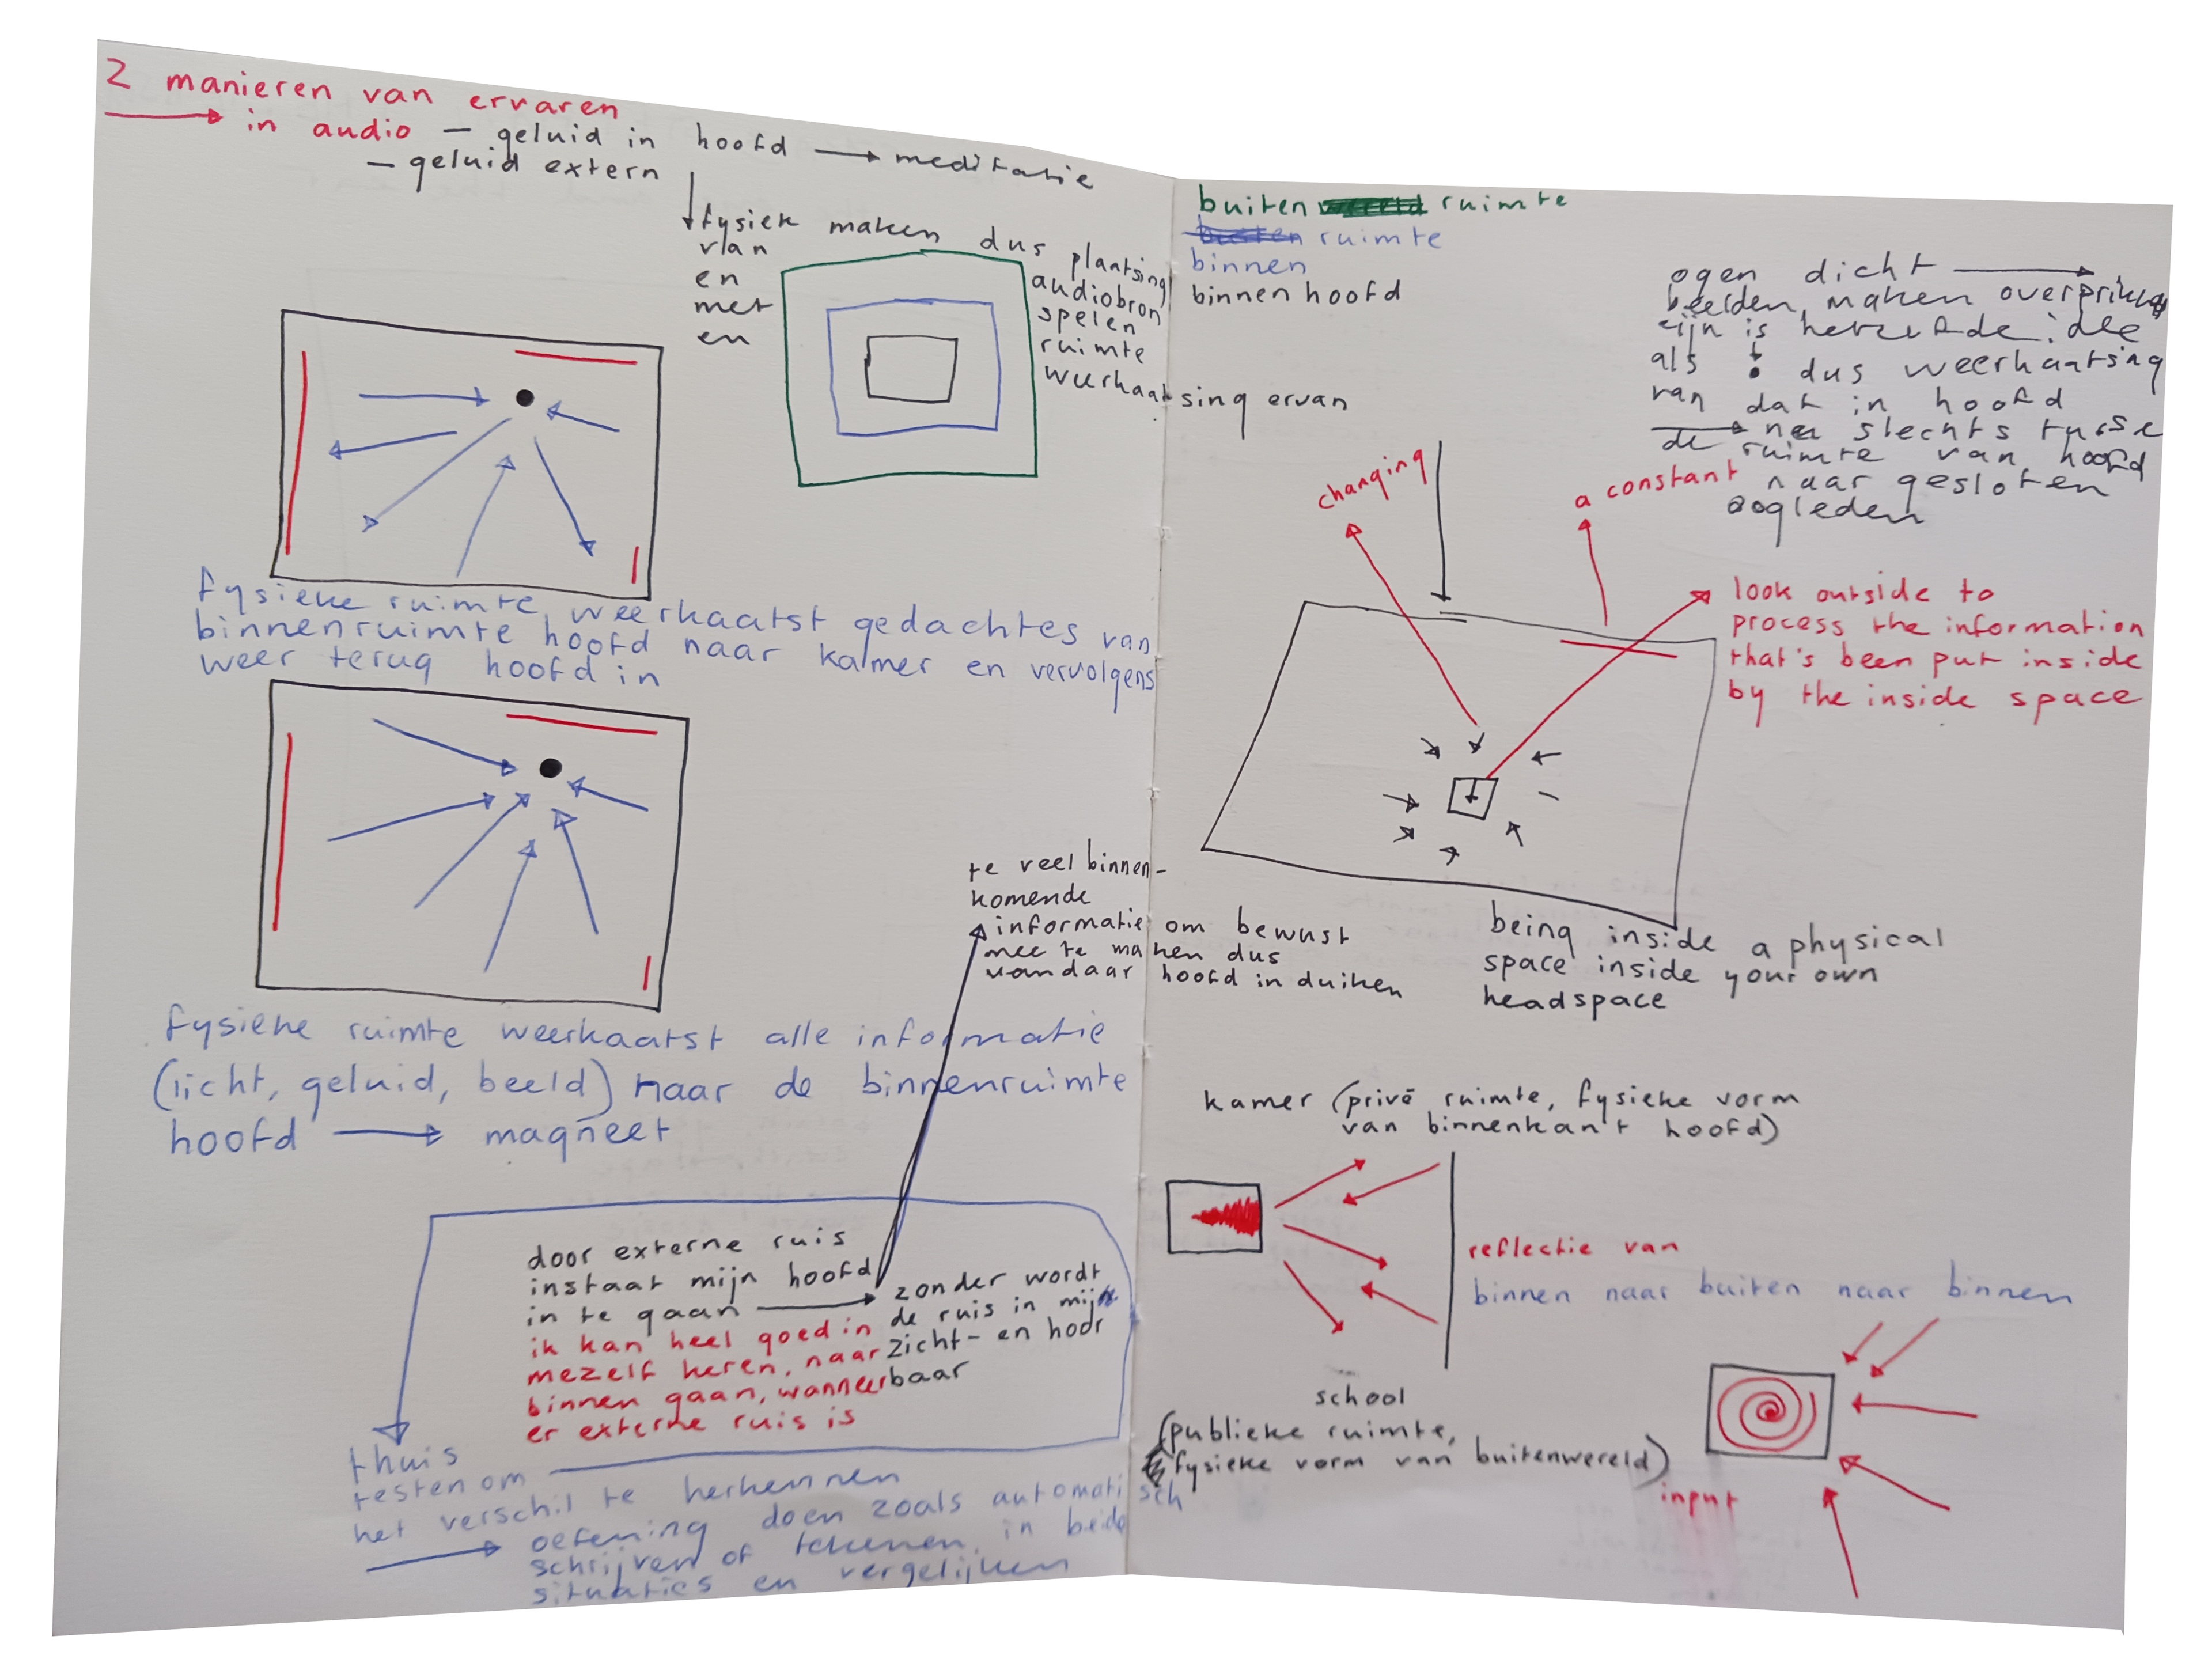 2 manieren van ervaren
in audio - geluid in hoofd → meditatie
- geluid extern
fysiek maken dus plaatsing
van audiobron
en spelen
met ruimte
en weerkaatsing ervan
fysieke ruimte weerkaatst gedachtes van
binnenruimte hoofd naar kamer en vervolgens
weer terug hoofd in
fysieke ruimte weerkaatst alle informatie
(licht, geluid, beeld) naar de binnenruimte
hoofd → magneet
te veel binnen-
komende
informatie om bewust
mee te maken dus
vandaar hoofd in duiken
door externe ruis
instaat mijn hoofd
in te gaan →
zonder wordt
de ruis in mijn
zicht- en hoor
baar
ik kan heel goed in
mezelf keren, naar
binnen gaan, wanneer
er externe ruis is
thuis
testen om
het verschil te herkennen
→ oefening doen zoals automatisch
schrijven of tekenen in beide
situaties en vergelijken
buiten ruimte
buiten ruimte
binnen
binnen hoofd
ogen dicht →
beelden, maken
zijn is hetzelfde idee
als dus weerkaatsing
van dat in hoofd
→ slechts
de ruimte van hoofd
naar gesloten
oogleden
changing
a constant
look outside to
process the information
that's been put inside
by the inside space
being inside a physical
space inside your own
headspace
kamer (privé ruimte, fysieke vorm
van binnenkant hoofd)
reflectie van
binnen naar buiten naar binnen
school
(publieke ruimte,
fysieke vorm van buitenwereld)
input